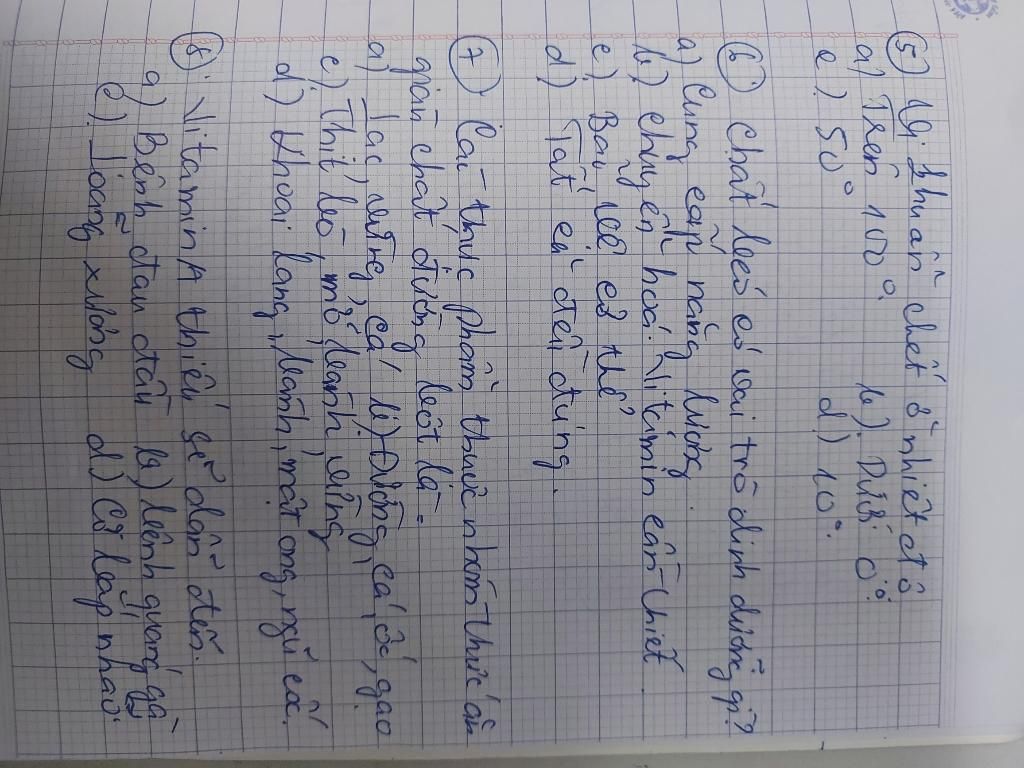 ⑤ Vi khuẩn chết ở nhiệt độ
a) Trên 100°. b) Dưới 0°.
c) 50° d) 10°.
⑥ Chất béo có vai trò dinh dưỡng gì?
a) Cung cấp năng lượng
b) chuyển hoá Vitamin cần thiết.
c) Bảo vệ cơ thể
d) Tất cả đều đúng.
⑦ Các thực phẩm thuộc nhóm thức ăn
giàu chất đường bột là:
a) lạc, vừng, cá, b) Đường, cá, ốc, gạo
c) Thịt bò, mỡ, bánh, vừng
d) Khoai lang, bánh, mật ong, ngũ cốc.
⑧. Vitamin A thiếu sẽ dẫn đến.
a) Bệnh đau đầu b) bệnh quáng gà
c) loãng xương d) Cơ bắp nhão